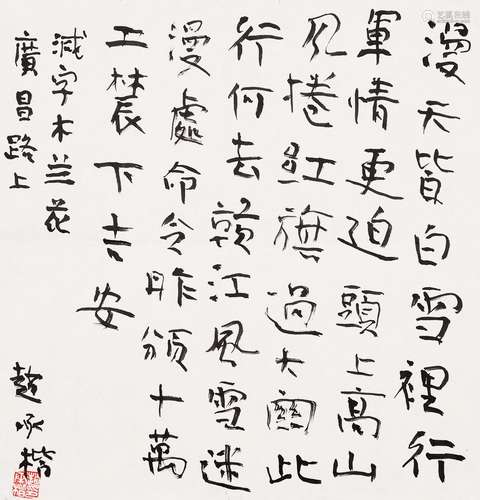 漫天皆白雪裡行
軍情更迫頭上高山
风捲紅旗過大關此
行何去贛江風雪迷
漫處命令昨頒十萬
工辳下吉安
減字木兰花
廣昌路上
趙承楷